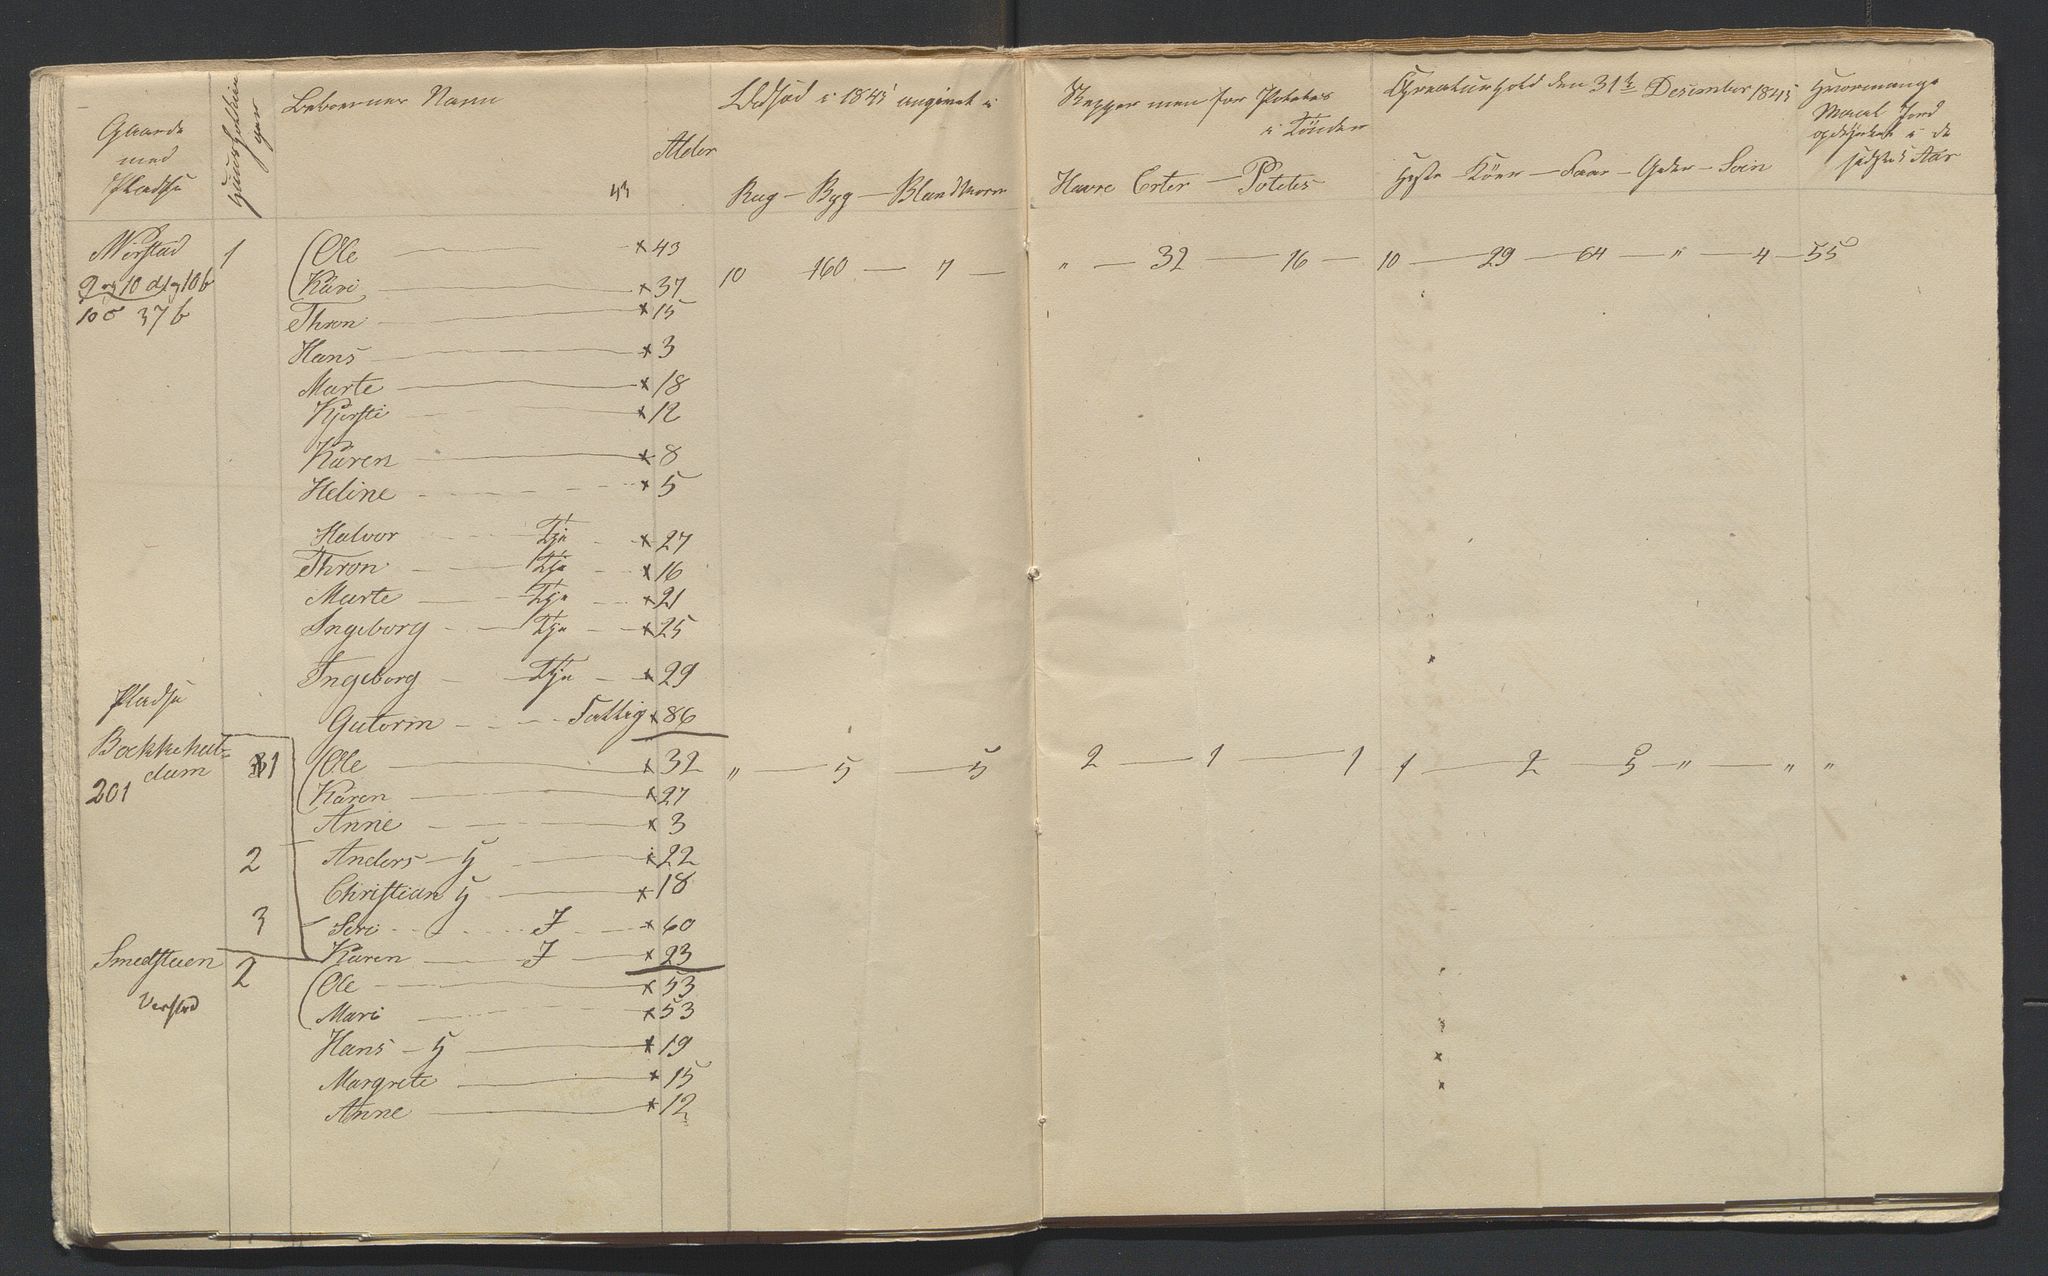 Gaarde med Pladse
Huusholdninger
Beboernes Navn
Alder
Udsæd i 1845 angivet i
Skjepper men for Potetes i Tönder
Creaturhold den 31te Desember 1845
Hvormange Maal Jord opdyrket i de sidste 5 Aar
43
Rug - Byg - Blandkorn
Havre Erter - Potetes
Heste - Köer - Faar - Geder - Svin
Wirstad 1 Ole x 43
10 160 7 " 32 16 10 29 64 " 4 55
9 og 10 a og 10 b Kari x 37
105 37 b Thron x 15
Hans x 3
Marte x 18
Kjersti x 12
Karen x 8
Heline x 5
Halvor Tje x 27
Thron Tje x 16
Marte Tje x 21
Ingeborg Tje x 25
Ingeborg Tje x 29
Pladse
Gutorm Fattig x 86
Bækkehul- 1 Ole x 32 " 5 5 2 1 1 1 2 5 " " "
dam
201 Karen x 27
Anne x 3
2 Anders x 22
Christian x 18
3 Siri I x 60
Karen I x 23
Smedstuen 2 Ole x 53
Verstad Mari x 53
Hans x 19
Margrete x 15
Anne x 12